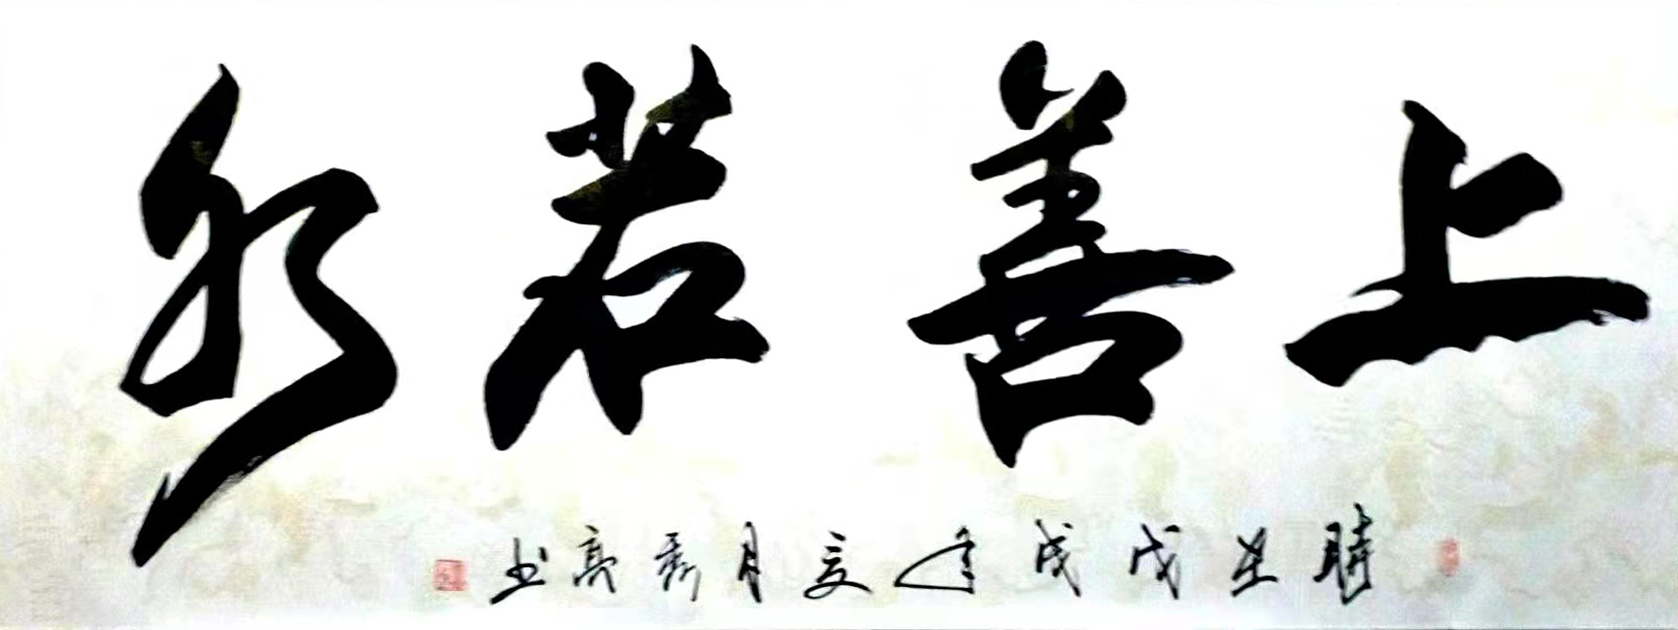 上善若水
時在戊戌年夏月秀亮书